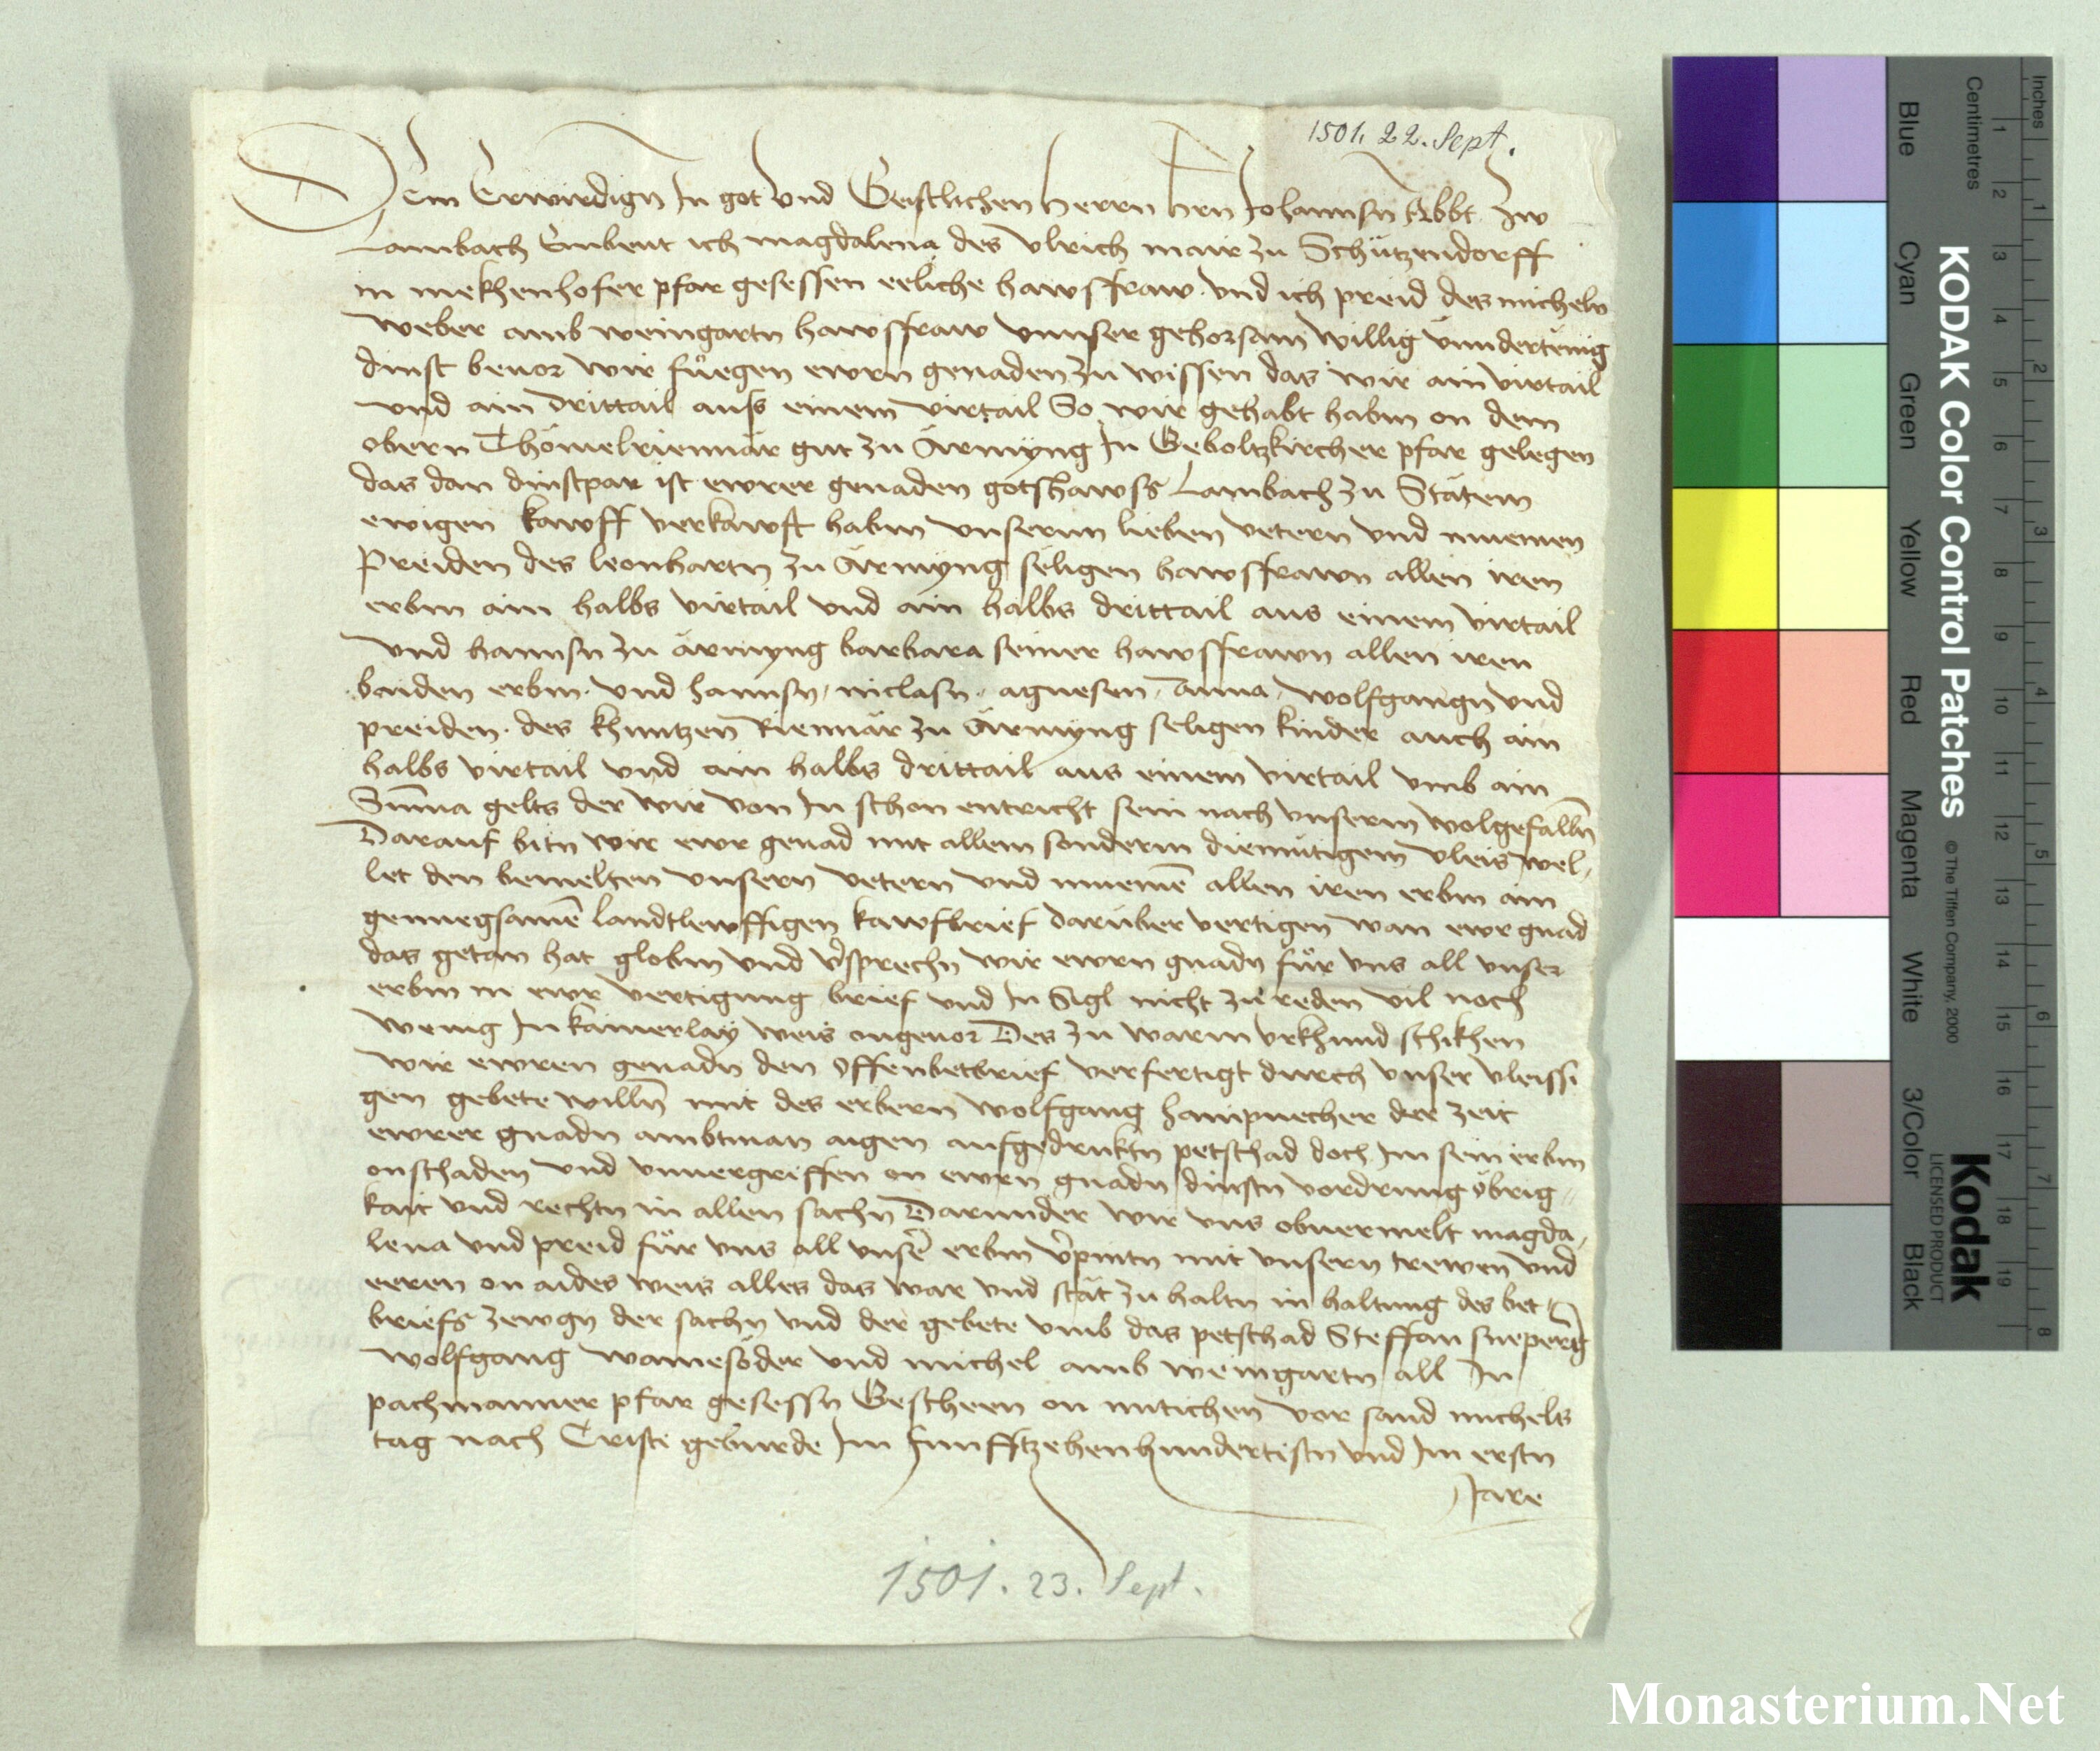 1501. 22. Sept.
Dem Erwirdign In got vnd Geistlichen herrn hrn Johannsn Abbt Zw
Lambach Embeut ich magdalena des vlrich mair zu Schützendorff
in mekhenhofer pfar gesessen eeliche hawsfraw vnd ich preid des micheln
weber amb weingartn hawsfraw vnnser gehorsam willig vnndertenig
dinst beuor wir füegen ewrn genaden zu wissen das wir ain virtail
vnd ain drittail auß einem virtail So wir gehabt habm on dem
obern Thömelriemär gut zu Ärmyng In Geboltzkircher pfar gelegen
das dan dinstpar ist ewrer genaden gotshawss Lambach zu Stätem
ewigen kawff verkawft habm vnserm lieben vetern vnd muemen
Preiden des leonhartn zu Ärmyng seligen hawsfrawn allen iren
erbm ain halbs virtail vnd ain halbs drittail aus einem virtail
vnd hannsn zu ärmyng barbara seiner hawsfrawn allen iren
baiden erbm vnd hannsn, niclasn, agnesen, anna, wolfgangn vnd
preiden des khuntzen Riemär zu Ärmyng seligen kinder auch ain
halbs virtail vnd ain halbs drittail aus einem virtail vmb ain
Sūma gelts der wir von In schon entricht sein nach vnserm wolgefalln̄
Darauf bitn wir ewr genad mit allem sonderm diemütigem vleis wel,
let den bemelten vnsern vetern vnd muemē allen iren erbm ain
genuegsamē landtlewffigen kawfbrief darüber vertigen wan ewr gnad
das getan hat globm vnd v̄sprechn wir ewrn gnadn für vns all vnser
erbm in ewr vertigung brief vnd In Sigl nicht zu reden vil noch
wenig In kainerlay weis ongeuor Des zu warm vrkhund schikhen
wir ewren genadn den offenbetbrief verfertigt durch vnser vleissi
gen gebete willn̄ mit des erbern wolfgang hampuecher der zeit
ewrer gnadn ambtman aigen aufgedruktn petschad doch Im sein erbm
onschaden vnd vnuergriffen on ewrn gnadn dinstn vordrung obrig,,
kait vnd rechtn in allen sachn Darunder wir vns obuermelt magda,
lena vnd preid für vns all vnsē erbm v̄pintn mit vnsern trewen vnd
eeren on aides weis alles das war vnd stät zu haltn in haltung des bet
briefs zewgn der sachn vnd der gebete vmb das petschad Steffan
wolfgang vnd michel amb weingartn all In
pachmanner pfar gesessn Gescheen on mitichen vor sand michels
tag nach Cristi geburde Im funfftzehenhundertistn vnd Im erstn
Jare
1501. 23. Sept.
KODAK Color Control Patches
© The Tiffen Company, 2000
Kodak
LICENSED PRODUCT
Blue Cyan Green Yellow Red Magenta White 3/Color Black
Inches
1 2 3 4 5 6 7 8
Centimetres
1 2 3 4 5 6 7 8 9 10 11 12 13 14 15 16 17 18 19
Monasterium.Net